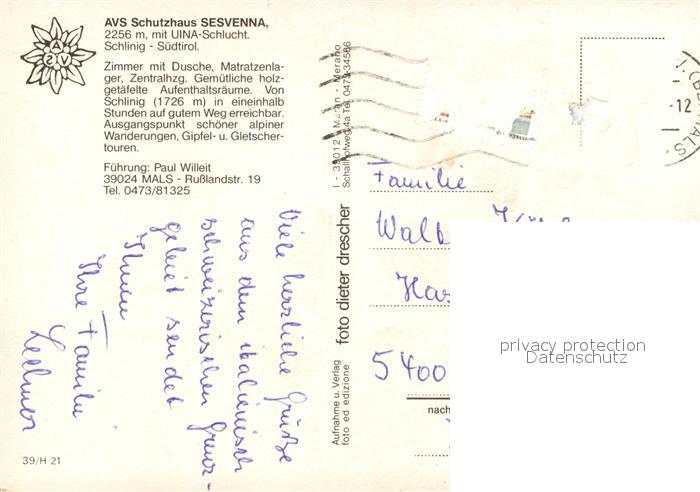 AVS
AVS Schutzhaus SESVENNA,
2256 m, mit UINA-Schlucht.
Schlinig - Südtirol.
Zimmer mit Dusche, Matratzenla-
ger, Zentralhzg. Gemütliche holz-
getäfelte Aufenthaltsräume. Von
Schlinig (1726 m) in eineinhalb
Stunden auf gutem Weg erreichbar.
Ausgangspunkt schöner alpiner
Wanderungen, Gipfel- u. Gletscher-
touren.
Führung: Paul Willeit
39024 MALS - Rußlandstr. 19
Tel. 0473/81325
Viele herzliche Grüße
aus dem italienisch
schweizerischen Grenz-
gebiet sendet
Ihnen
Ihre Familie
39/H 21
Aufnahme u. Verlag
foto ed edizione
foto dieter drescher
I - 39012 Meran - Merano
Schallhofweg 4a Tel. 0473-34586
12
Familie
Walt
Has
5400
nach
privacy protection
Datenschutz